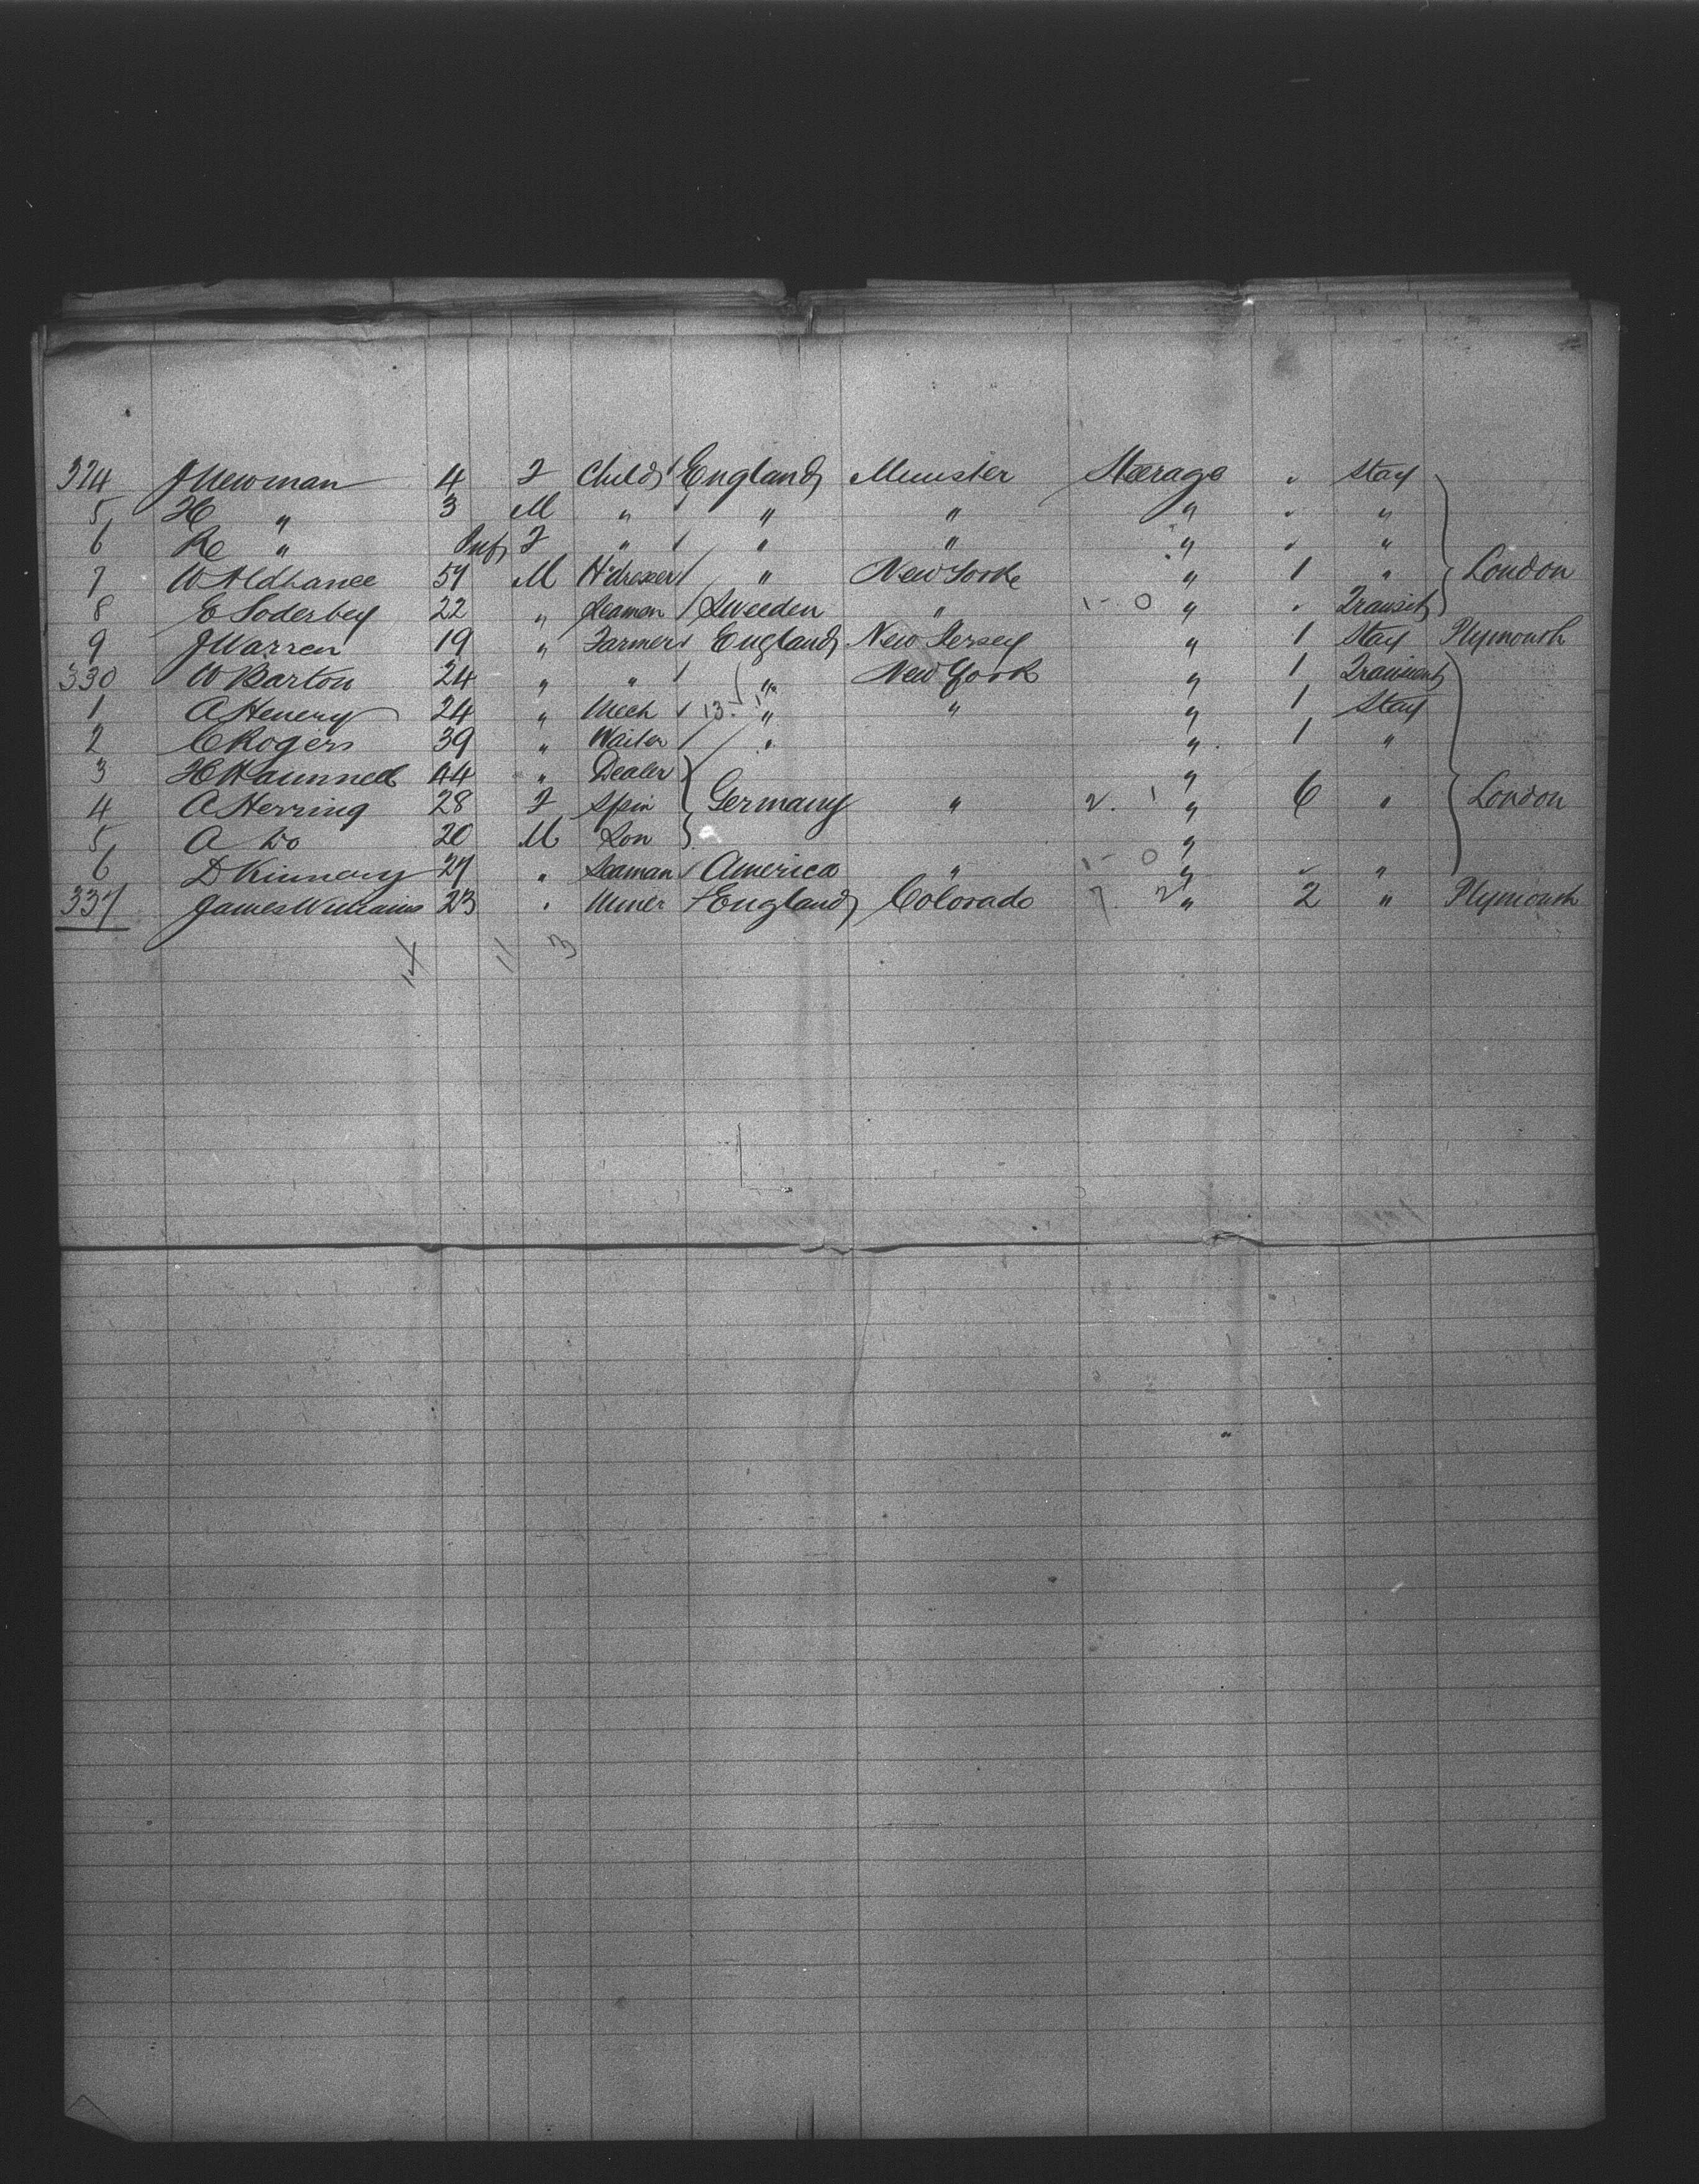 324 J Newman 4 F Child England Munster Steerage " Stay
5 H " 3 M " " " " " "
6 R " Inf F " " " " " "
7 W Aldhance 57 M H'dresser " New York " 1 " London
8 E Soderbey 22 " Seaman Sweeden " 1 - 0 " " Transit
9 J Warren 19 " Farmer England New Jersey " 1 Stay Plymouth
330 W Barton 24 " " " New York " 1 Transient
1 A Henery 24 " Mech 13. 1 " " " 1 Stay
2 C Rogers 39 " Waiter " " 1 "
3 H 44 " Dealer "
4 A Herring 28 F Spin Germany " 2. 1 " 6 " London
5 A Do 20 M Son "
6 D Kinnary 27 " Seaman America " 1 - 0 " " "
337 James Williams 23 " Miner England Colorado 7. 2 " 2 " Plymouth
14 11 3